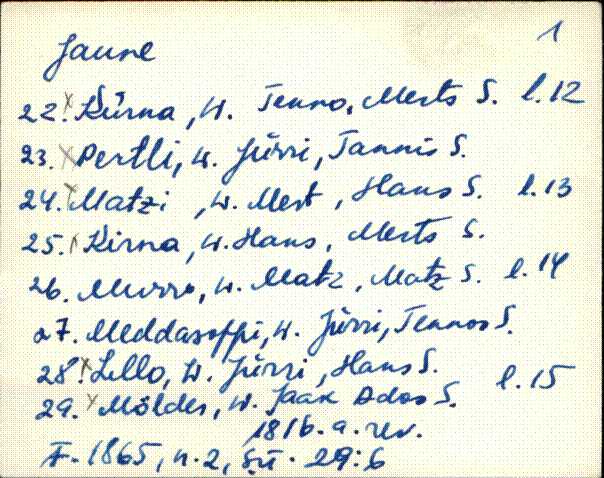 1
Jaune
22. x Kürna, W. Tenno, Merts S. l.12
23. x Pertli, W. Jürri, Tannis S.
24. x Matzi, W. Mert, Hans S. l.13
25. x Kirna, W. Hans, Merts S.
26. Murro, W. Matz, Matz S. l.14
27. Meddasoffi, W. Jürri, Tennos S.
28. x Lello, W. Jürri, Hans S.
29. x Möldes, W. Jaak Ados S. l.15
1816. a. rev.
F. 1865, n. 2, sü. 29:6